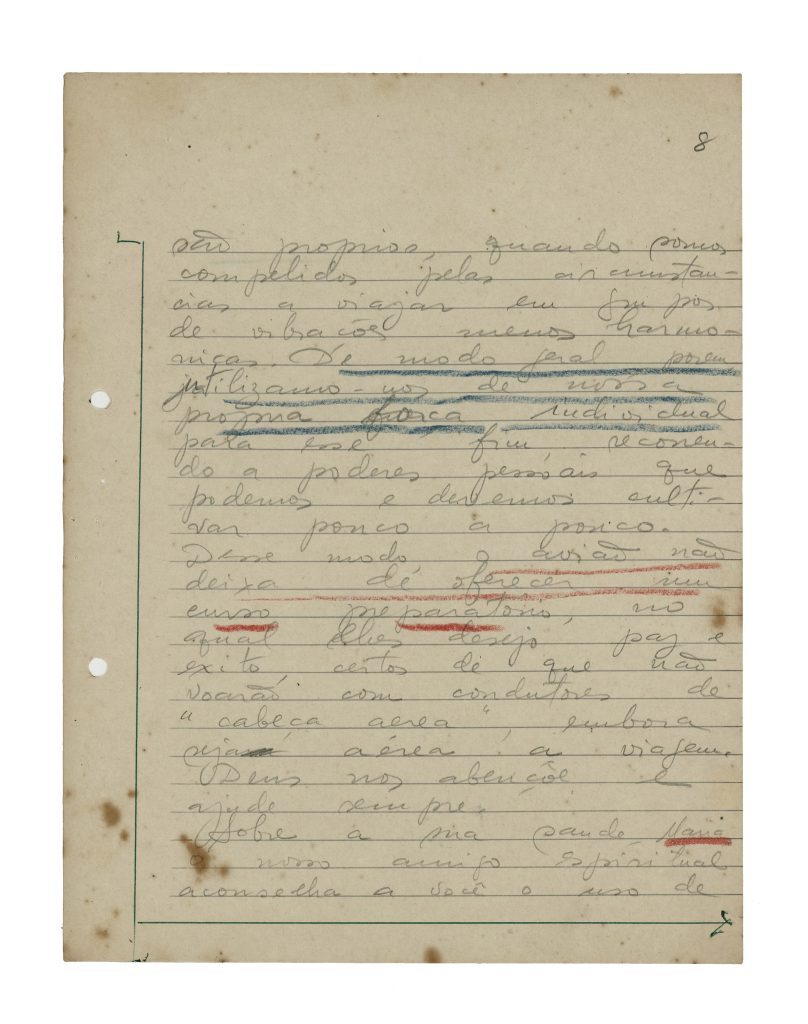 8
são proprios, quando somos
compelidos pelas circunstan-
cias a viajar em grupos
de vibrações menos harmo-
nicas. De modo geral porem,
utilizamo-nos de nossa
propria força individual
para esse fim recorren-
do a poderes pessoáis que
podemos e devemos culti-
var pouco a pouco.
Desse modo o avião não
deixa de oferecer um
curso preparatorio, no
qual lhes desejo paz e
exito, certos de que não
voarão com condutores de
"cabeça aerea", embora
seja aérea a viagem.
Deus nos abençõe e
ajude sempre.
Sobre a sua saude, Maria
o nosso amigo espiritual
aconselha a você o uso de